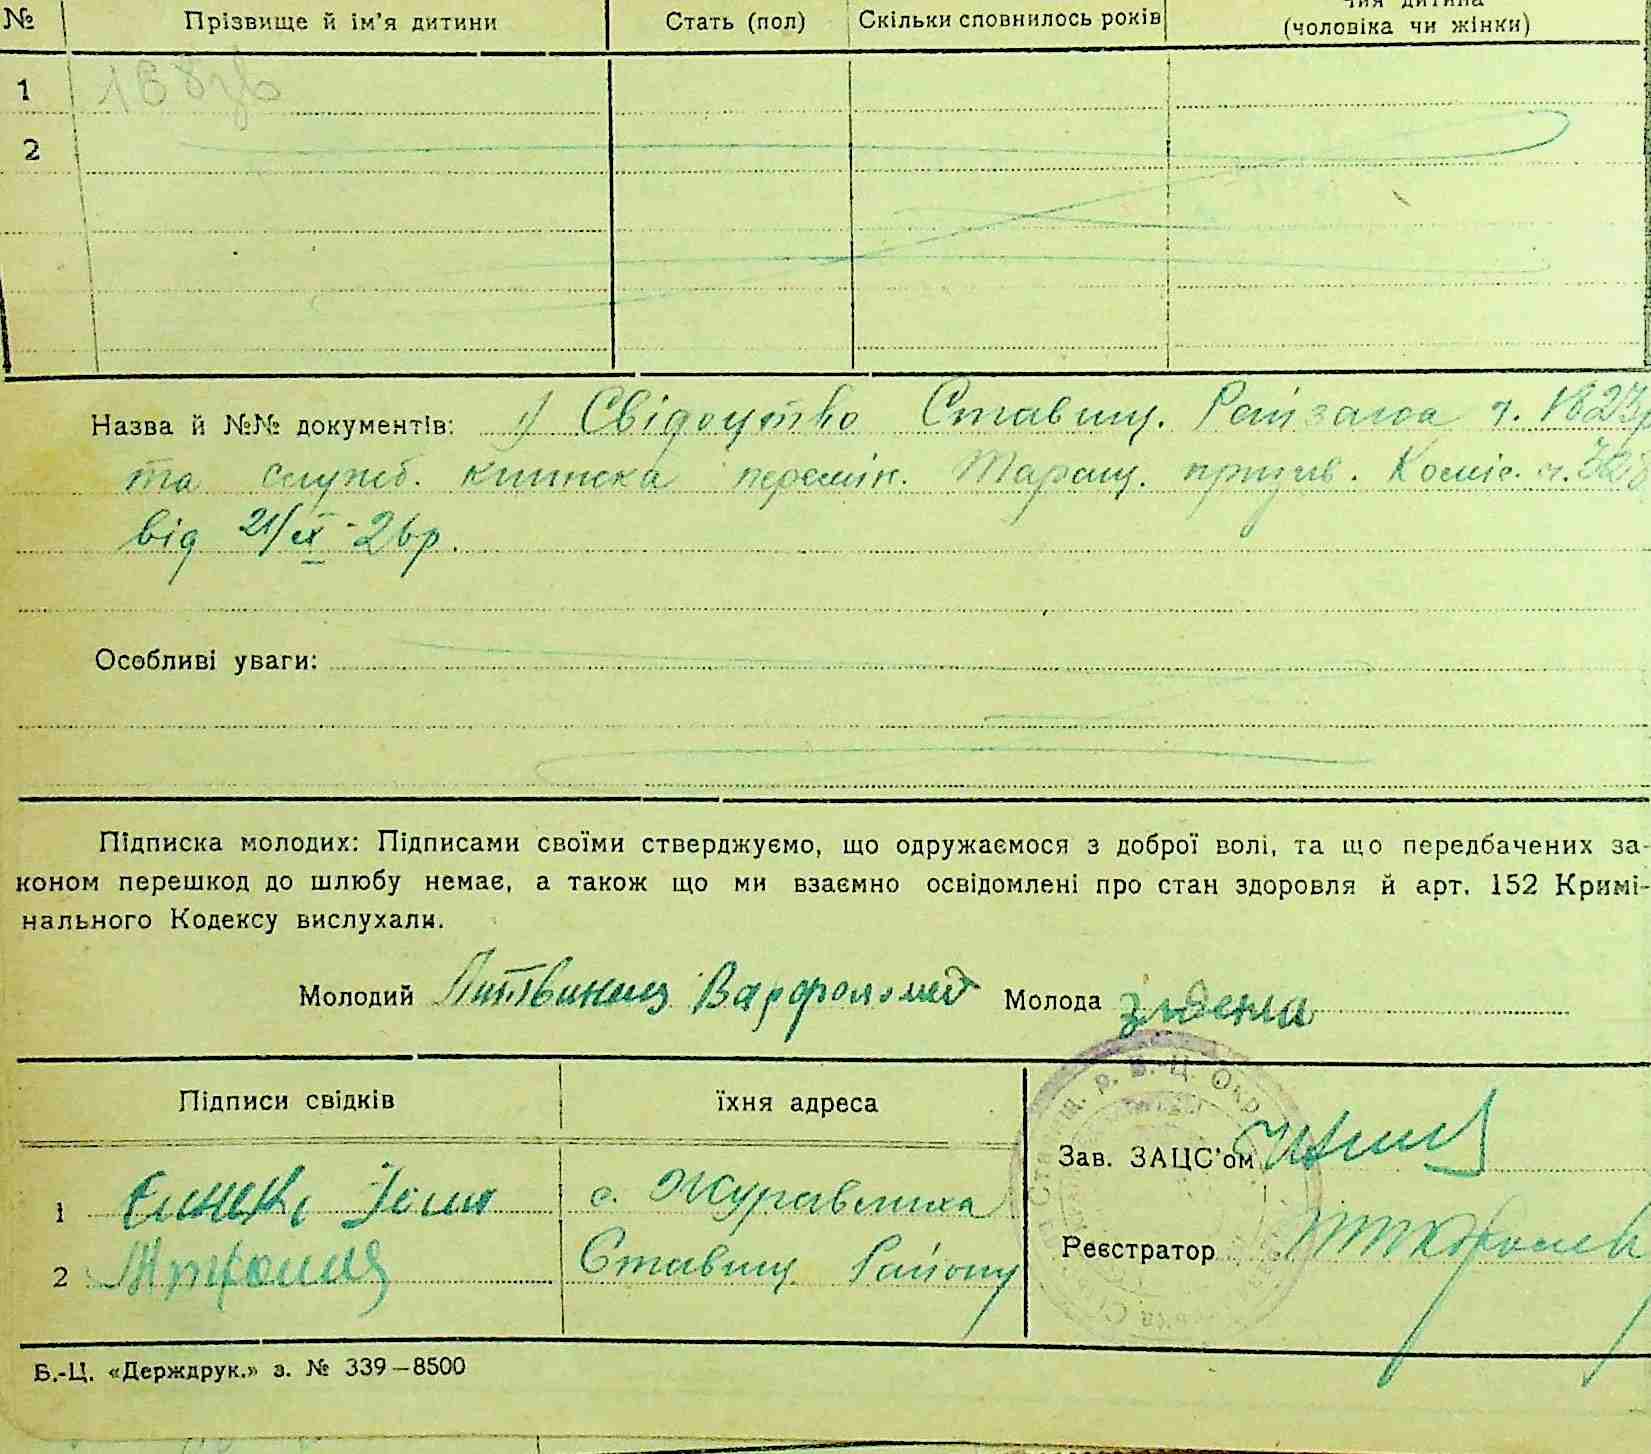 № Прізвище й ім'я дитини Стать (пол) Скільки сповнилось років чия дитина (чоловіка чи жінки)
1
2
Назва й №№ документів: 1) Свідоцтво Ставищ. Райзагса ч. 1823
та служб. книжка перемін. Таращ. призив. Коміс. ч.
від 21/IX-26р.
Особливі уваги:
Підписка молодих: Підписами своїми стверджуємо, що одружаємося з доброї волі, та що передбачених за-
коном перешкод до шлюбу немає, а також що ми взаємно освідомлені про стан здоровля й арт. 152 Кримі-
нального Кодексу вислухали.
Молодий Литвинец Варфоломей Молода
Підписи свідків їхня адреса
Зав. ЗАЦС'ом
1 с. Журавлиха
Реєстратор
2 Ставищ. Району
Б.-Ц. «Держдрук.» з. № 339—8500